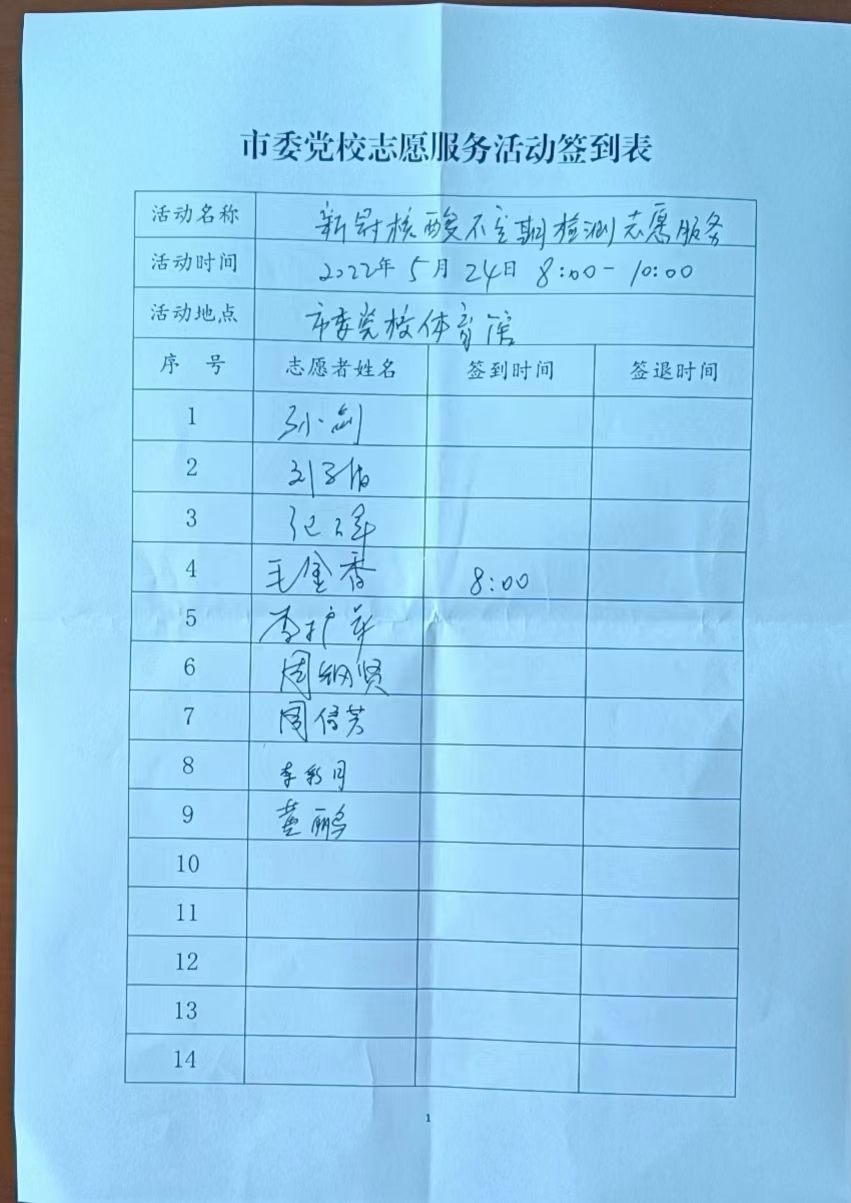 市委党校志愿服务活动签到表
活动名称 新冠核酸不定期检测志愿服务
活动时间 2022年5月24日 8:00-10:00
活动地点 市委党校体育馆
序 号 志愿者姓名 签到时间 签退时间
1 孙剑
2
3
4 毛金香 8:00
5 李护军
6 周纲贤
7 周倩芳
8 李彩月
9 黄鹏
10
11
12
13
14
1